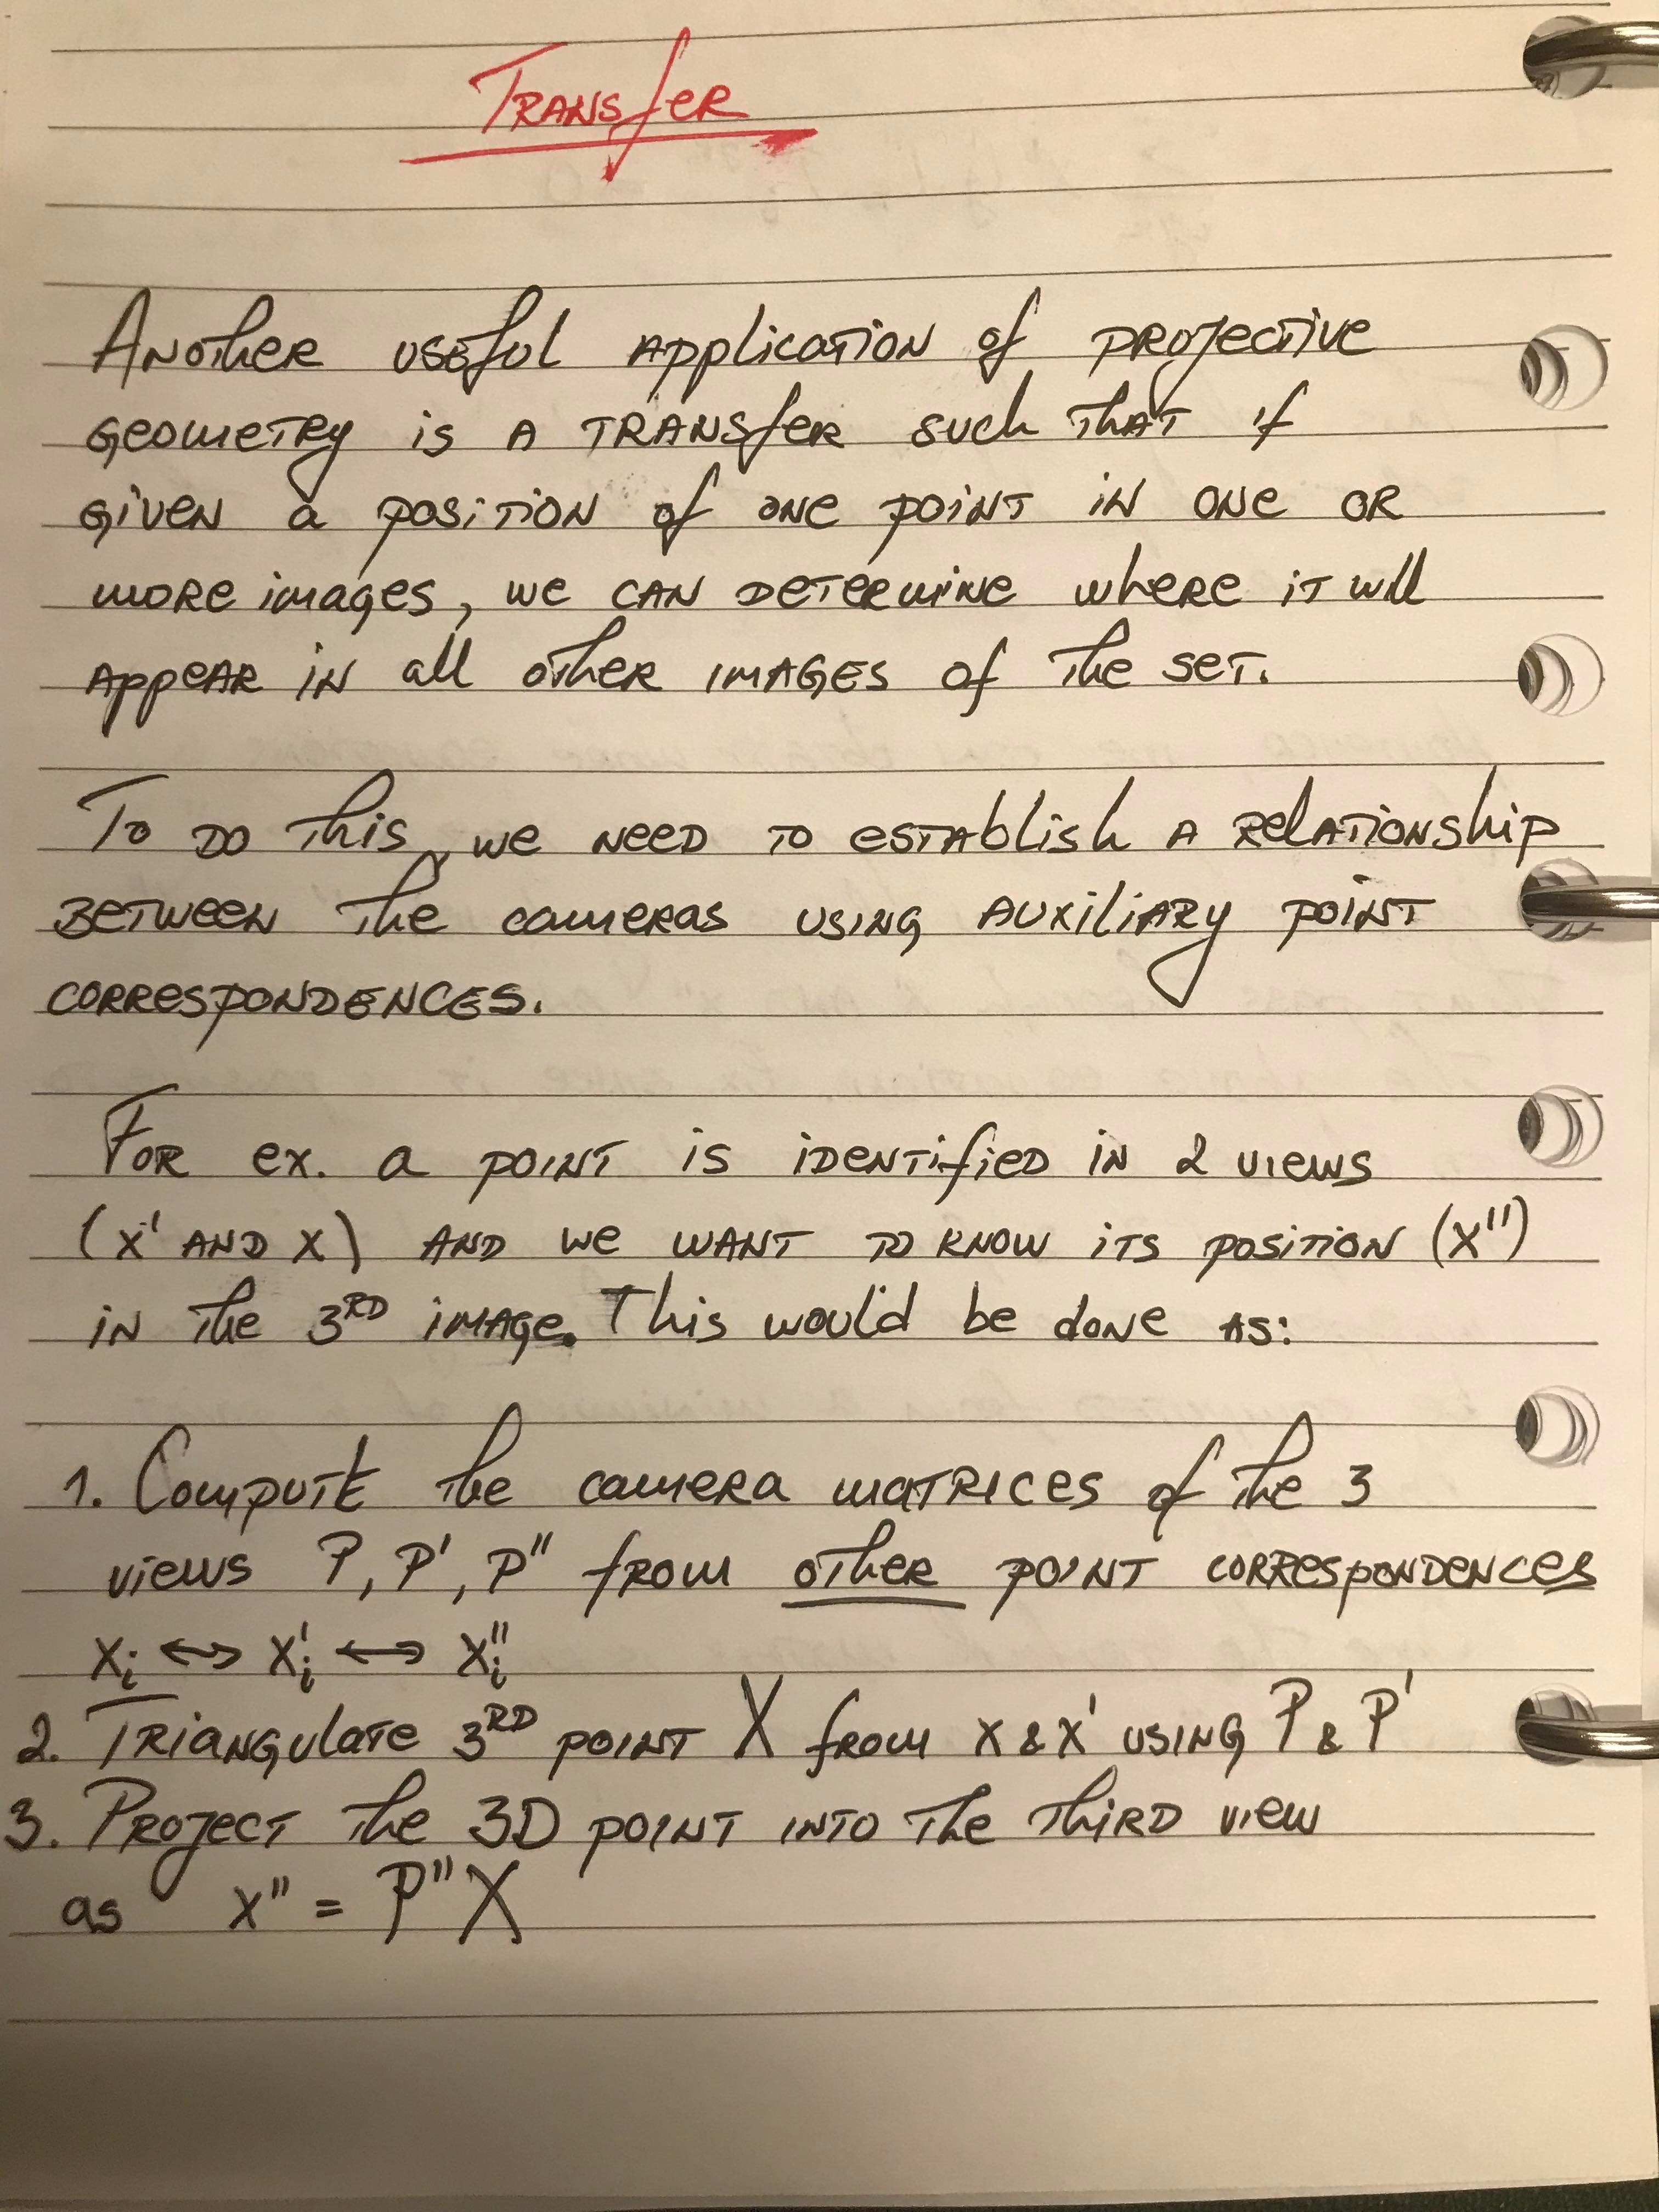 Transfer
Another useful application of projective
geometry is a transfer such that if
given a position of one point in one or
more images, we can determine where it will
appear in all other images of the set.
To do this, we need to establish a relationship
between the cameras using auxiliary point
correspondences.
For ex. a point is identified in 2 views
(x' and x) and we want to know its position (x'')
in the 3RD image. This would be done as:
1. Compute the camera matrices of the 3
views P, P', P'' from other point correspondences
xi ↔ x'i ↔ x''i
2. Triangulate 3RD point X from x & x' using P & P'
3. Project the 3D point into the third view
as x'' = P''X